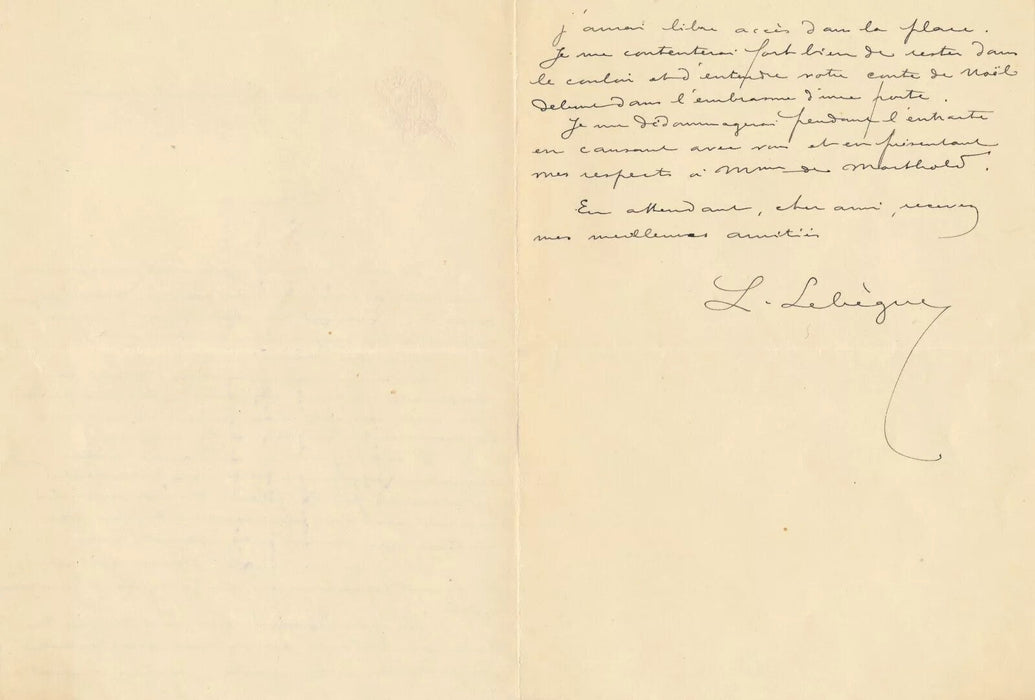 j'aurai libre accès dans la place.
Je me contenterai fort bien de rester dans
le couloir et d'entendre votre conte de Noël
debout dans l'embrasure d'une porte.
Je me dédommagerai pendant l'entracte
en causant avec vous et en présentant
mes respects à Mme de Marthold.
En attendant, cher ami, recevez
mes meilleures amitiés
L. Lebègue